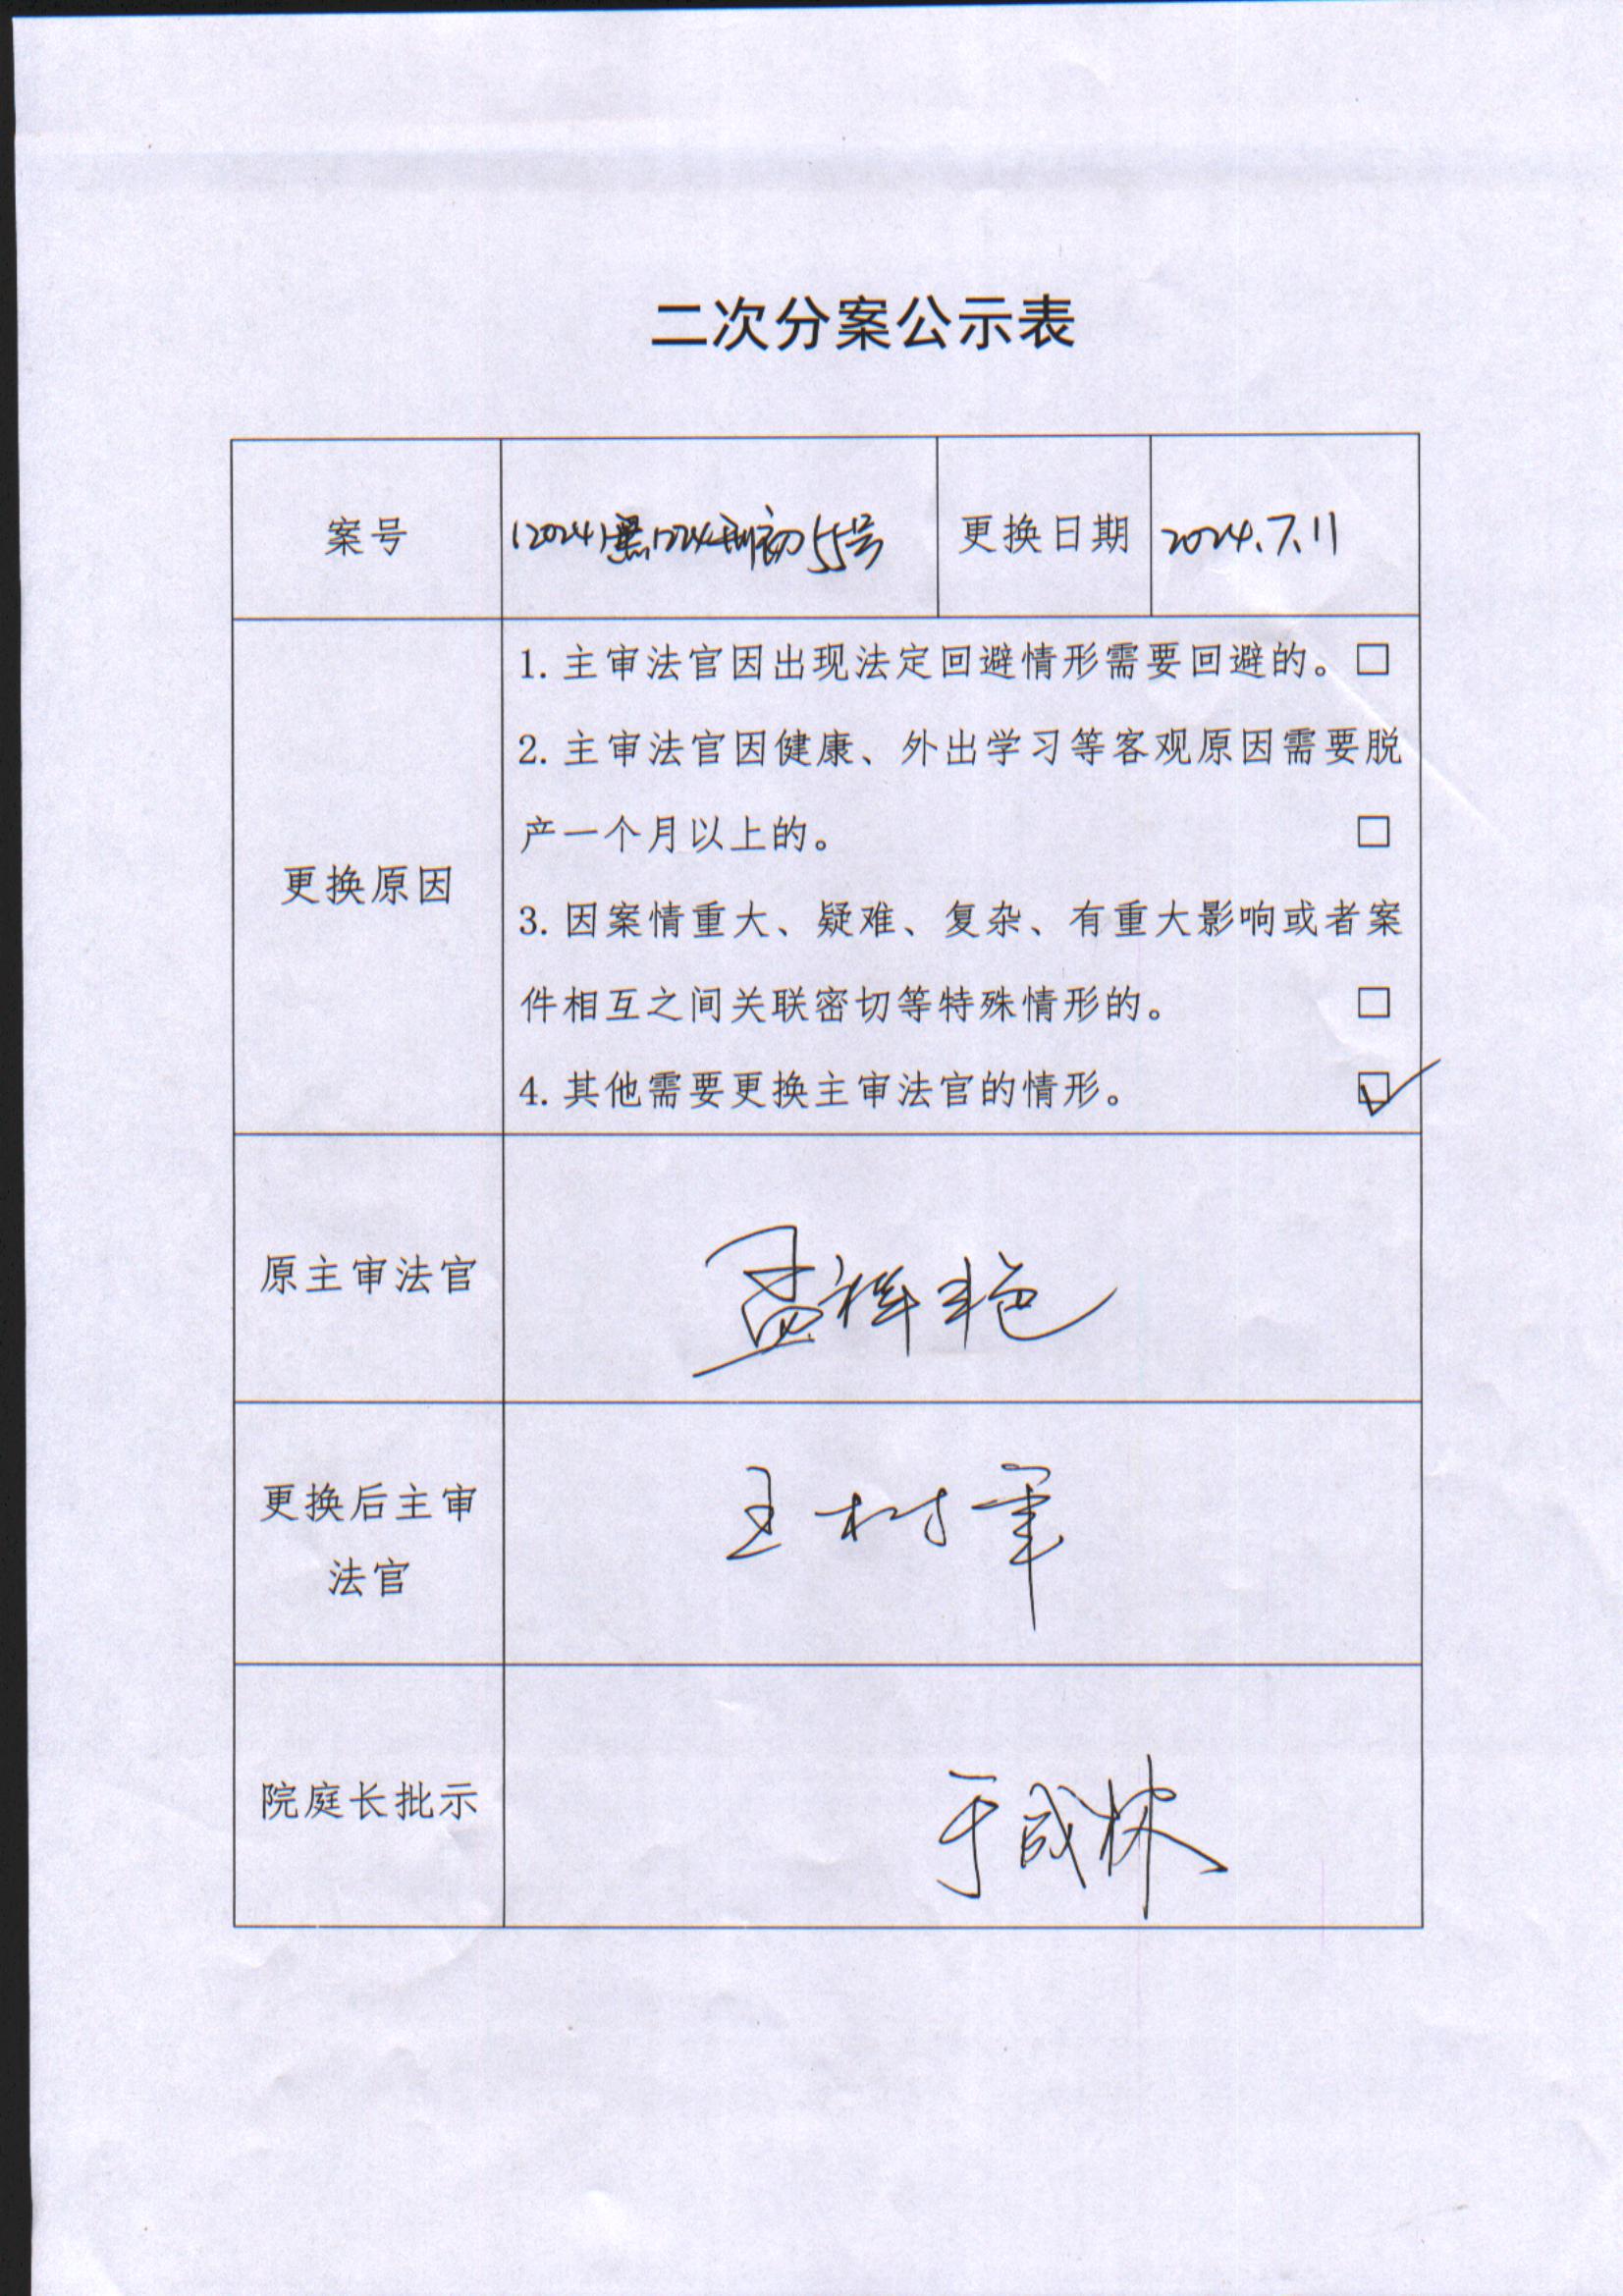 二次分案公示表
案号 (2024)黑1224刑初55号 更换日期 2024.7.11
1. 主审法官因出现法定回避情形需要回避的。□
2. 主审法官因健康、外出学习等客观原因需要脱
产一个月以上的。 □
更换原因
3. 因案情重大、疑难、复杂、有重大影响或者案
件相互之间关联密切等特殊情形的。 □
4. 其他需要更换主审法官的情形。 ☑
原主审法官 孟祥艳
更换后主审
法官
王树军
院庭长批示 于成林